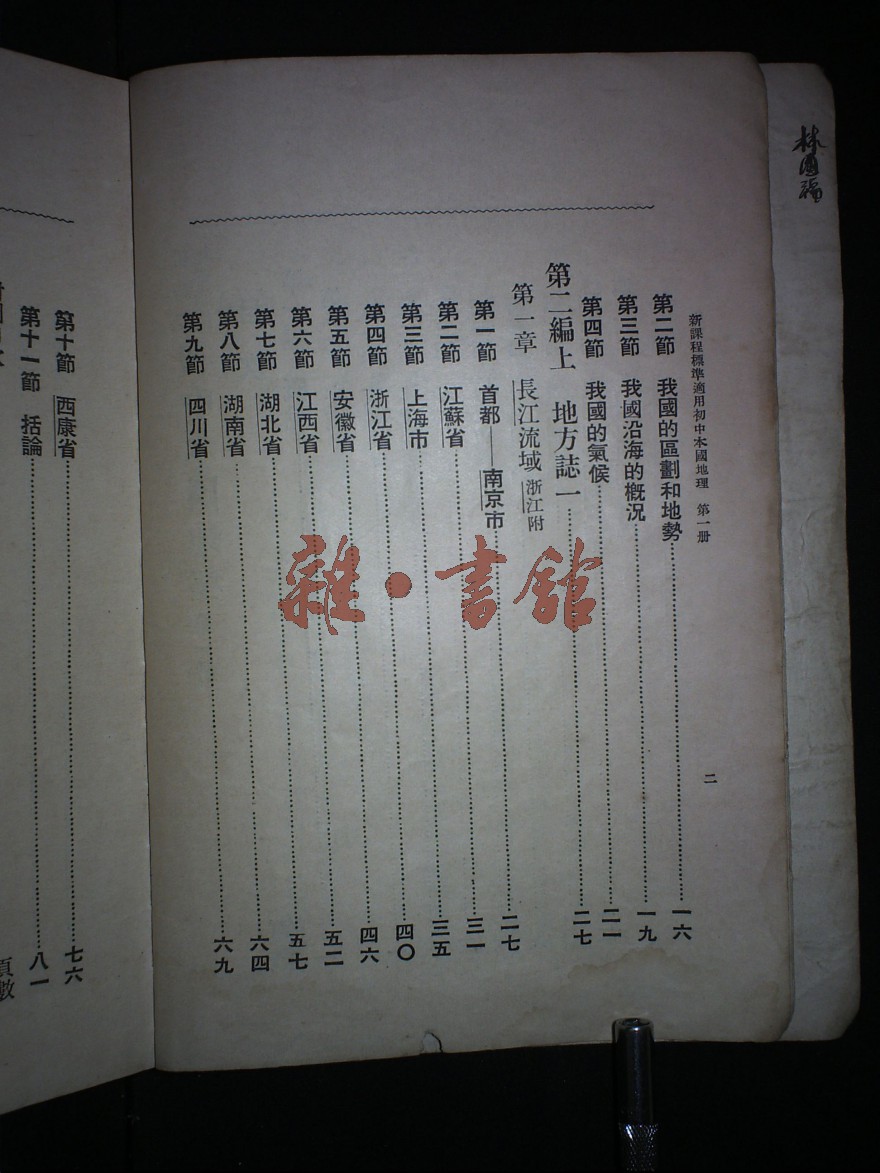 林國福
新課程標準適用初中本國地理 第一册 二
第二節 我國的區劃和地勢……一六
第三節 我國沿海的概況……一九
第四節 我國的氣候……二一
第二編上 地方誌一……二七
第一章 長江流域 浙江附
第一節 首都——南京市……二七
第二節 江蘇省……三一
第三節 上海市……三五
第四節 浙江省……四〇
第五節 安徽省……四六
第六節 江西省……五二
第七節 湖北省……五七
第八節 湖南省……六四
第九節 四川省……六九
第十節 西康省……七六
第十一節 括論……八一
頁數
雜·書館